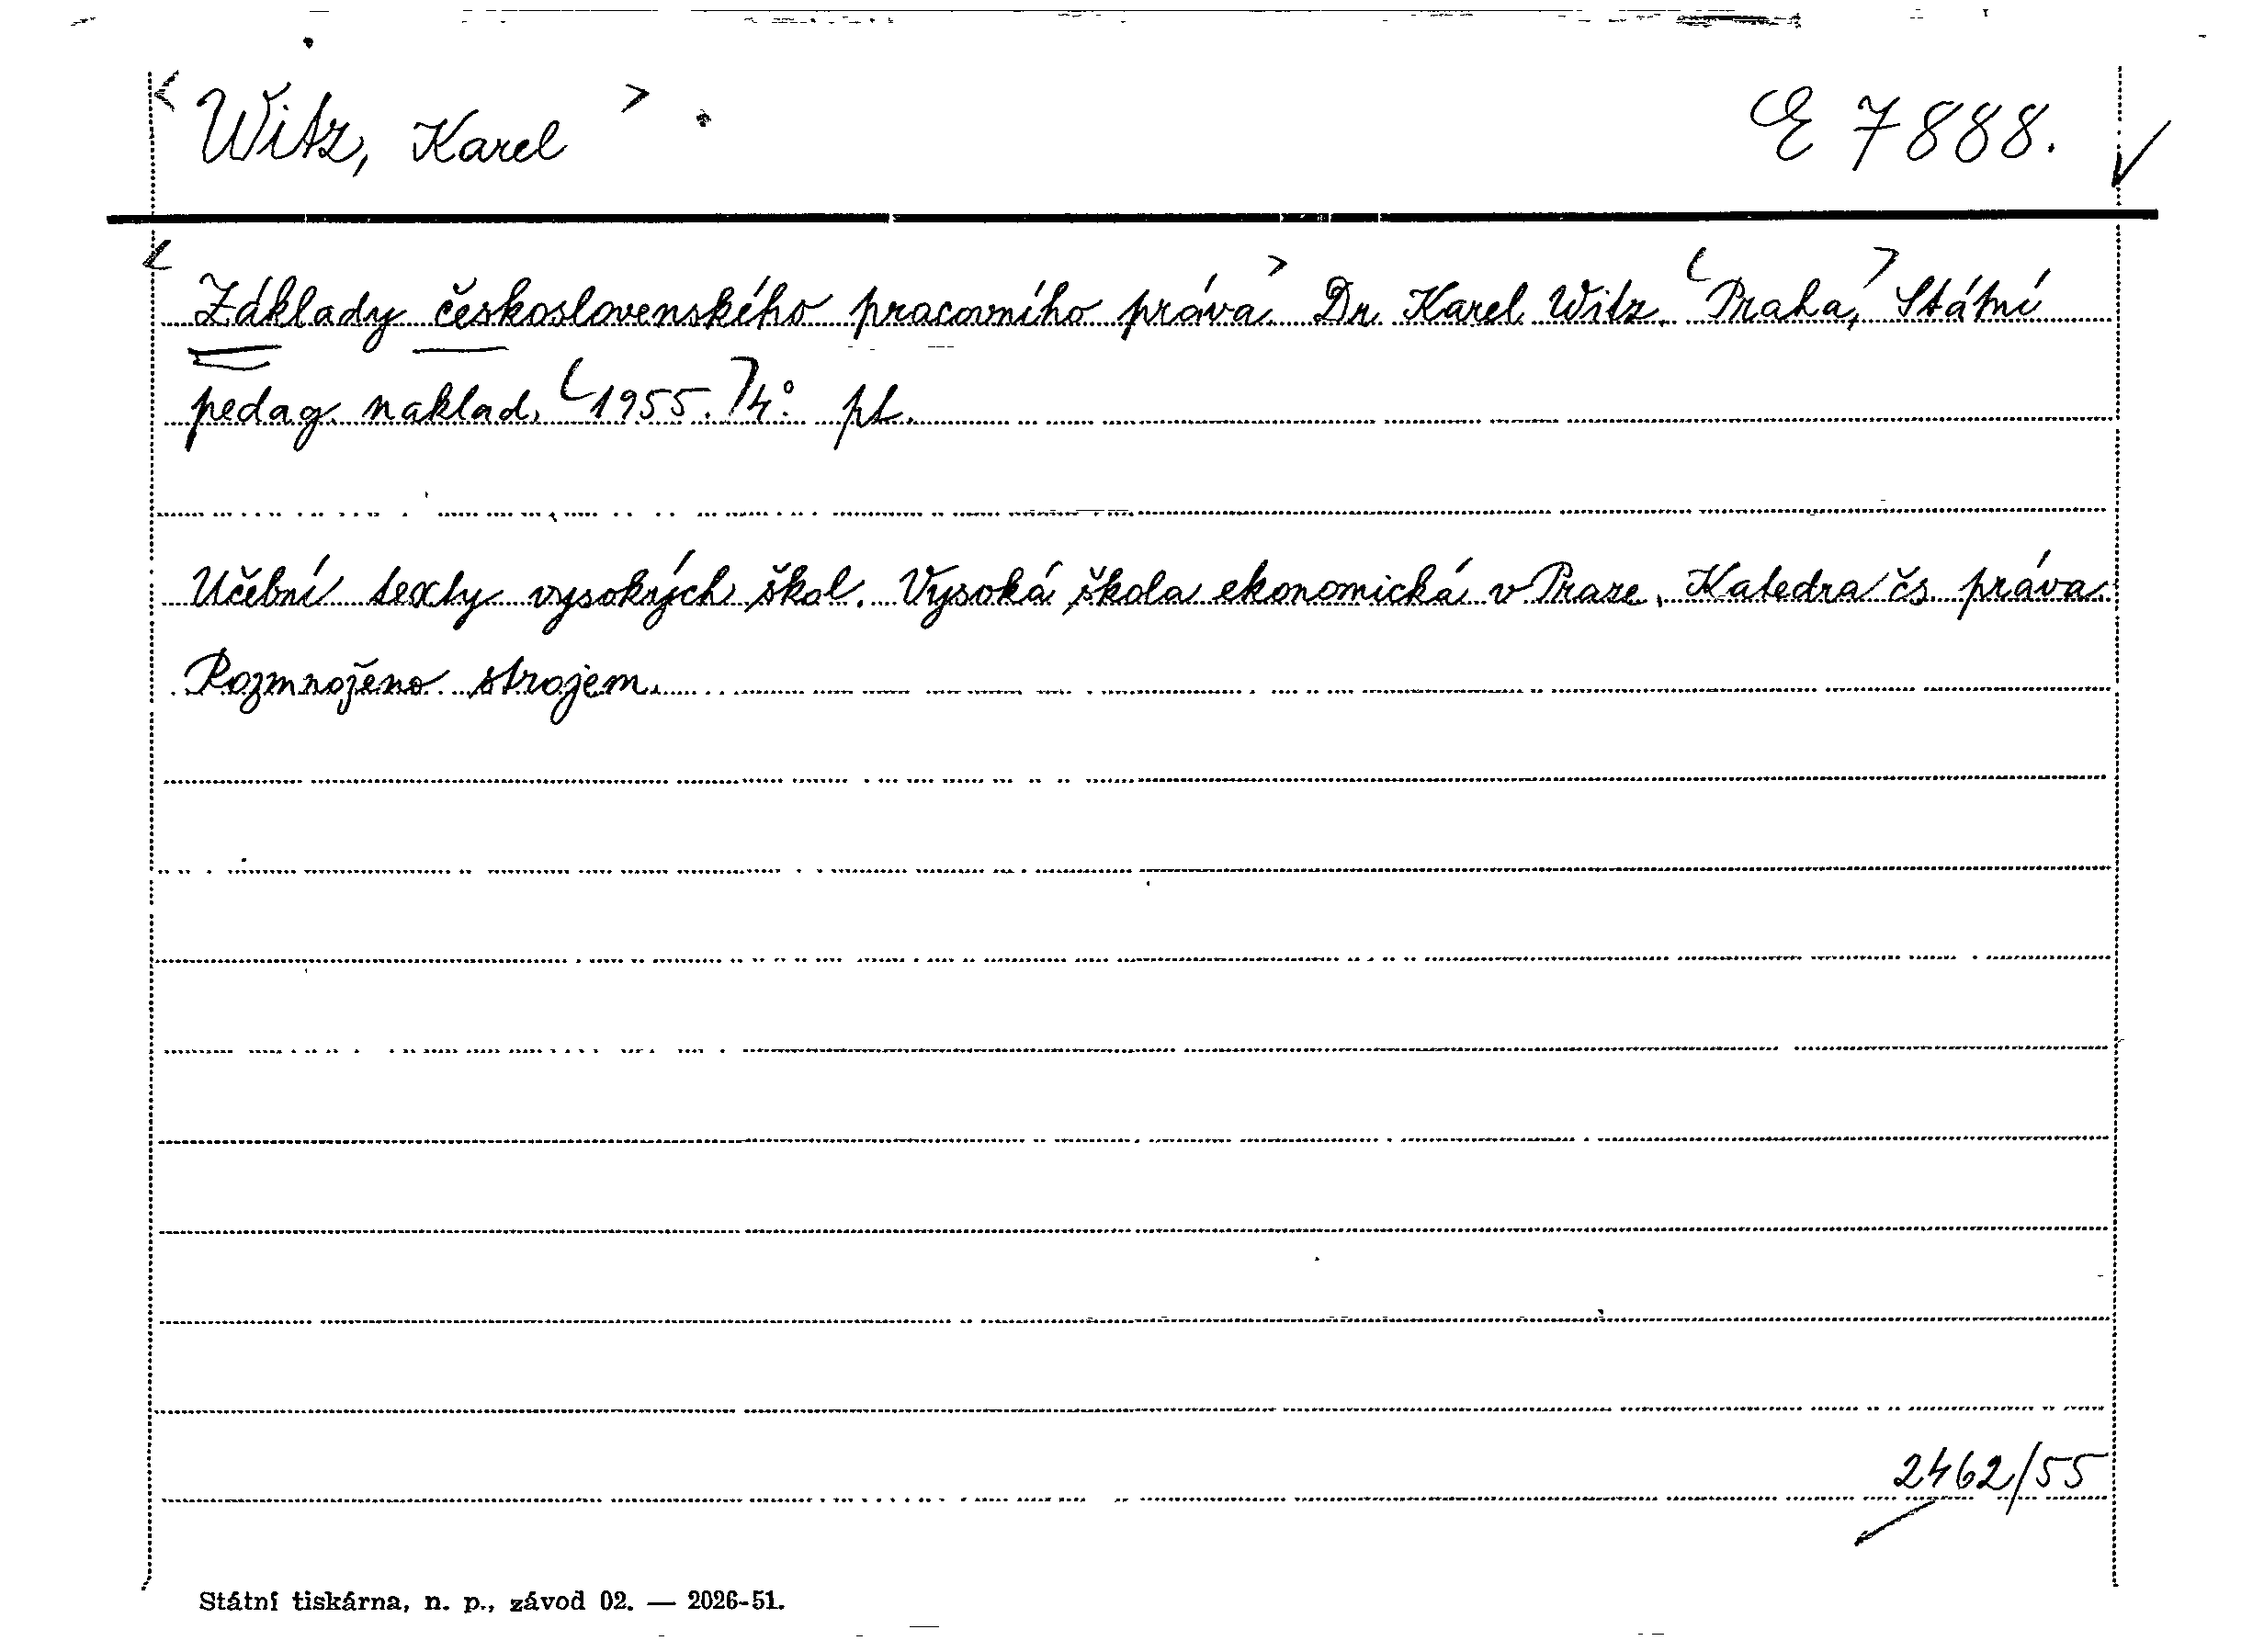 < Witz, Karel > E 7888. ✓
< Základy československého pracovního práva. > Dr. Karel Witz. < Praha, > Státní
pedag. naklad. < 1955. > 4°. pt.
Učební texty vysokých škol. Vysoká škola ekonomická v Praze. Katedra čs. práva.
Rozmnoženo strojem.
2462/55
Státní tiskárna, n. p., závod 02. — 2026-51.